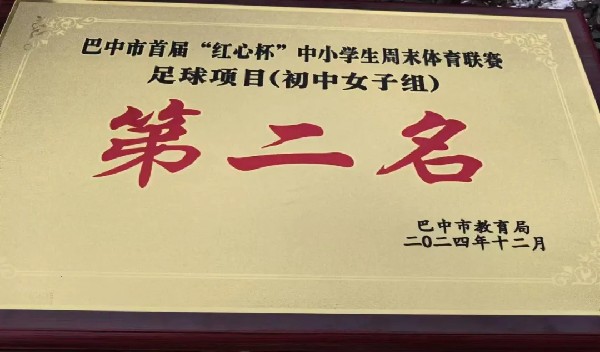 巴中市首届“红心杯”中小学生周末体育联赛
足球项目(初中女子组)
第二名
巴中市教育局
二〇二四年十二月